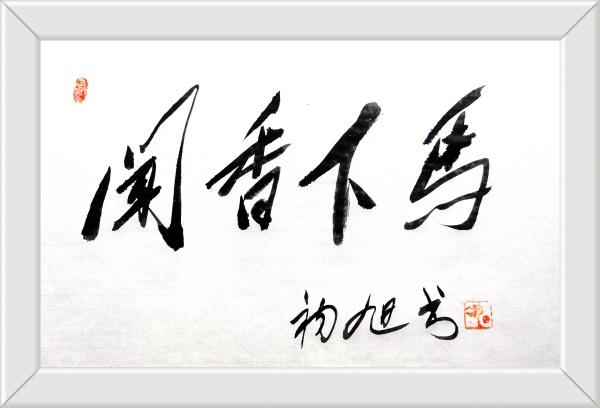 闻香下马
初旭书